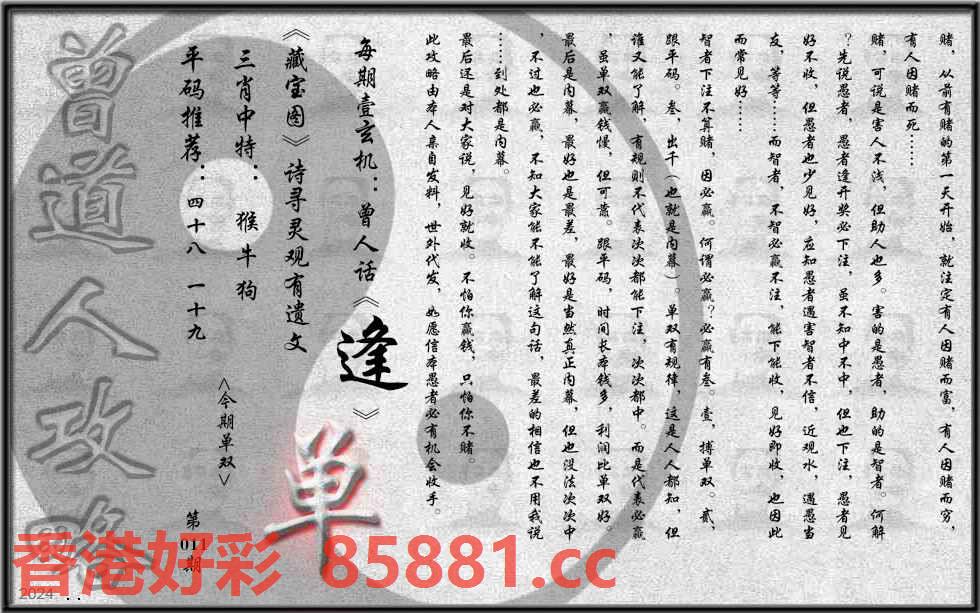 赌，从前有赌的第一天开始，就注定有人因赌而富，有人因赌而穷，
有人因赌而死……
赌，可说是害人不浅，但助人也多。害的是愚者，助的是智者。何解
？先说愚者，愚者逢开奖必下注，虽不知中不中，但也下注，愚者见
好不收，但愚者也少见好，应知愚者遇害智者不信，近观水，遇愚当
友，等等……而智者，不智必赢不注，能下能收，见好即收，也因此
而常见好……
智者下注不算赌，因必赢。何谓必赢？必赢有叁。壹，搏单双。贰，
跟平码。叁，出千（也就是内幕）。单双有规律，这是人人都知，但
谁又能了解，有规则不代表次次都能下注，次次都中。而是代表必赢
，虽单双赢钱慢，但可靠。跟平码，时间长本钱多，利润比单双好。
最后是内幕，最好也是最差，最好是当然真正内幕，但也没法次次中
，不过也必赢，不知大家能不能了解这句话，最差的相信也不用我说
……到处都是内幕。
最后还是对大家说，见好就收。不怕你赢钱，只怕你不赌。
此攻略由本人亲自发料，世外代发，如愿信本愚者必有机会收手。
每期壹玄机：曾人话《逢》
《藏宝图》诗寻灵观有遗文
三肖中特：猴牛狗
平码推荐：四十八 一十九
<今期单双>
单
第011期
曾道人攻略
香港好彩 85881.cc
2024